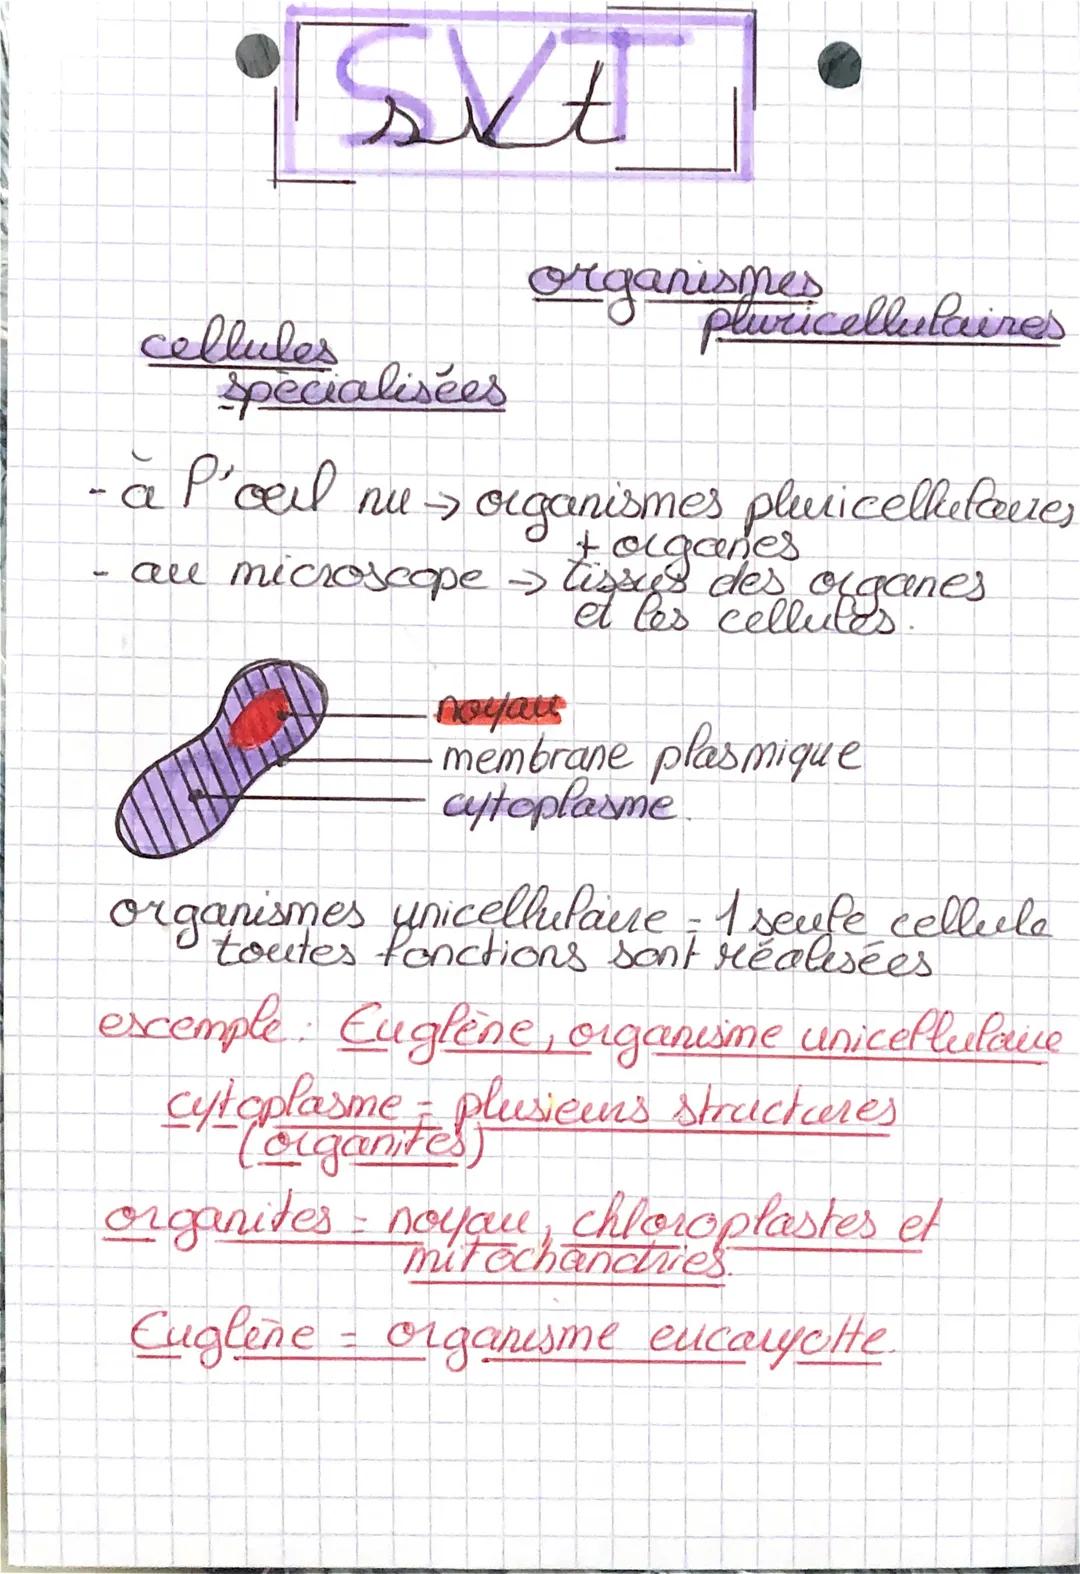 SVT
svt
organismes
pluricellulaires
cellules
spécialisées
- à l'oeil nu → organismes pluricellulaires
+ organes
- au microscope → tissus des organes
et les cellules.
noyau
membrane plasmique
cytoplasme.
organismes unicellulaire = 1 seule cellule
toutes fonctions sont réalisées
escemple : Euglène, organisme unicellulaire
cytoplasme = plusieurs structures
(organites)
organites = noyau, chloroplastes et
mitochandries.
Euglène = organisme eucaryotte.